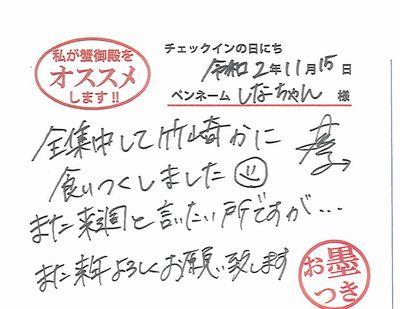 私が蟹御殿を
オススメ
します!!
チェックインの日にち
令和2年11月15日
ペンネーム しなーちゃん 様
全集中して竹崎かに
食いつくしました
また来週と言いたい所ですが…
また来年よろしくお願い致します
お墨
つき